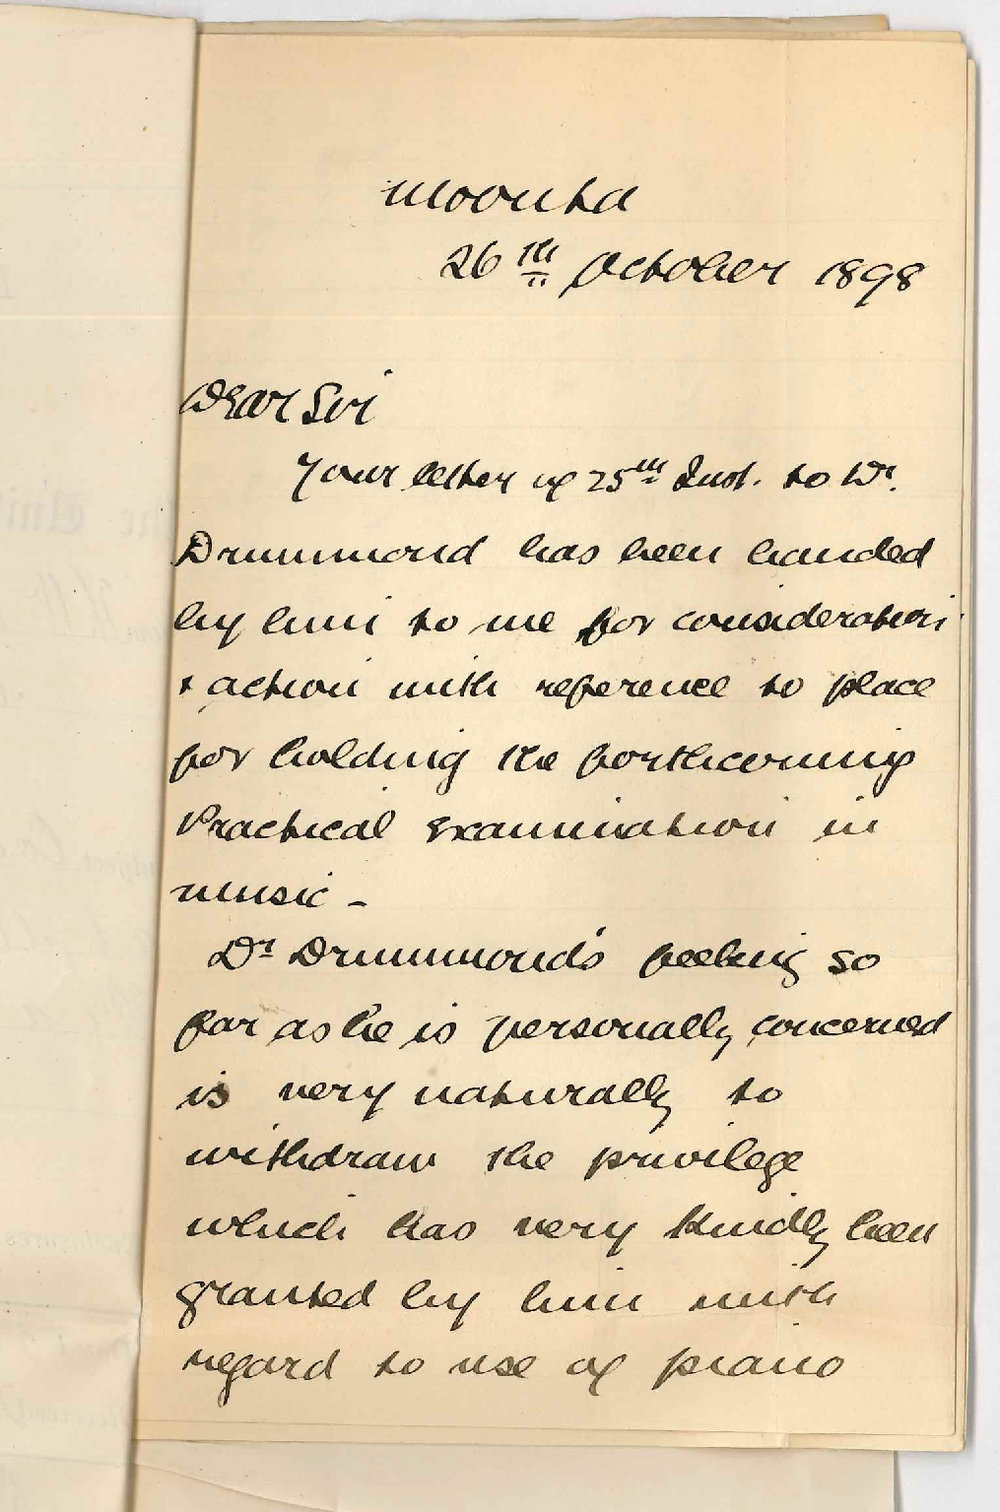 Moonta
26th October 1898
Dear Sir
Your letter of 25th Inst. to Dr.
Drummond has been handed
by him to me for consideration
& action with reference to place
for holding the forthcoming
Practical Examination in
music -
Dr Drummond's feeling so
far as he is personally concerned
is very naturally to
withdraw the privilege
which has very kindly been
granted by him with
regard to use of piano